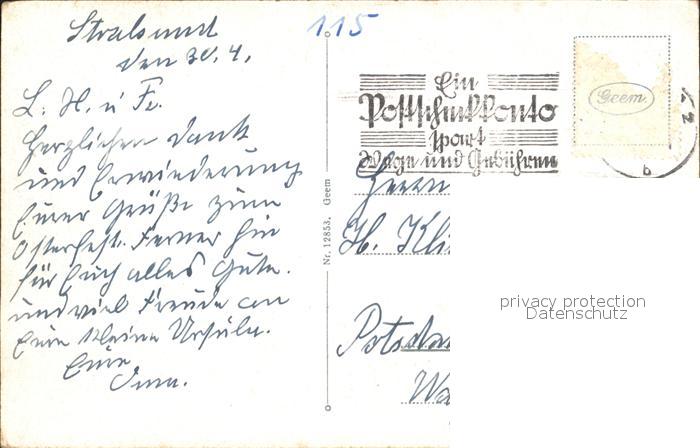 Stralsund
den 30. 4.
L. H. u. Fr.
Herzlichen Dank
und Erwiderung
Eurer Grüße zum
Osterfest. Ferner hin
für Euch alles Gute.
und viel Freude an
Eure kleine Ursula.
Eure
115
Ein
Postscheckkonto
spart
Wege und Gebühren
Geem
b
Nr. 12853. Geem
Herrn
H. Kli
Potsda
privacy protection
Datenschutz